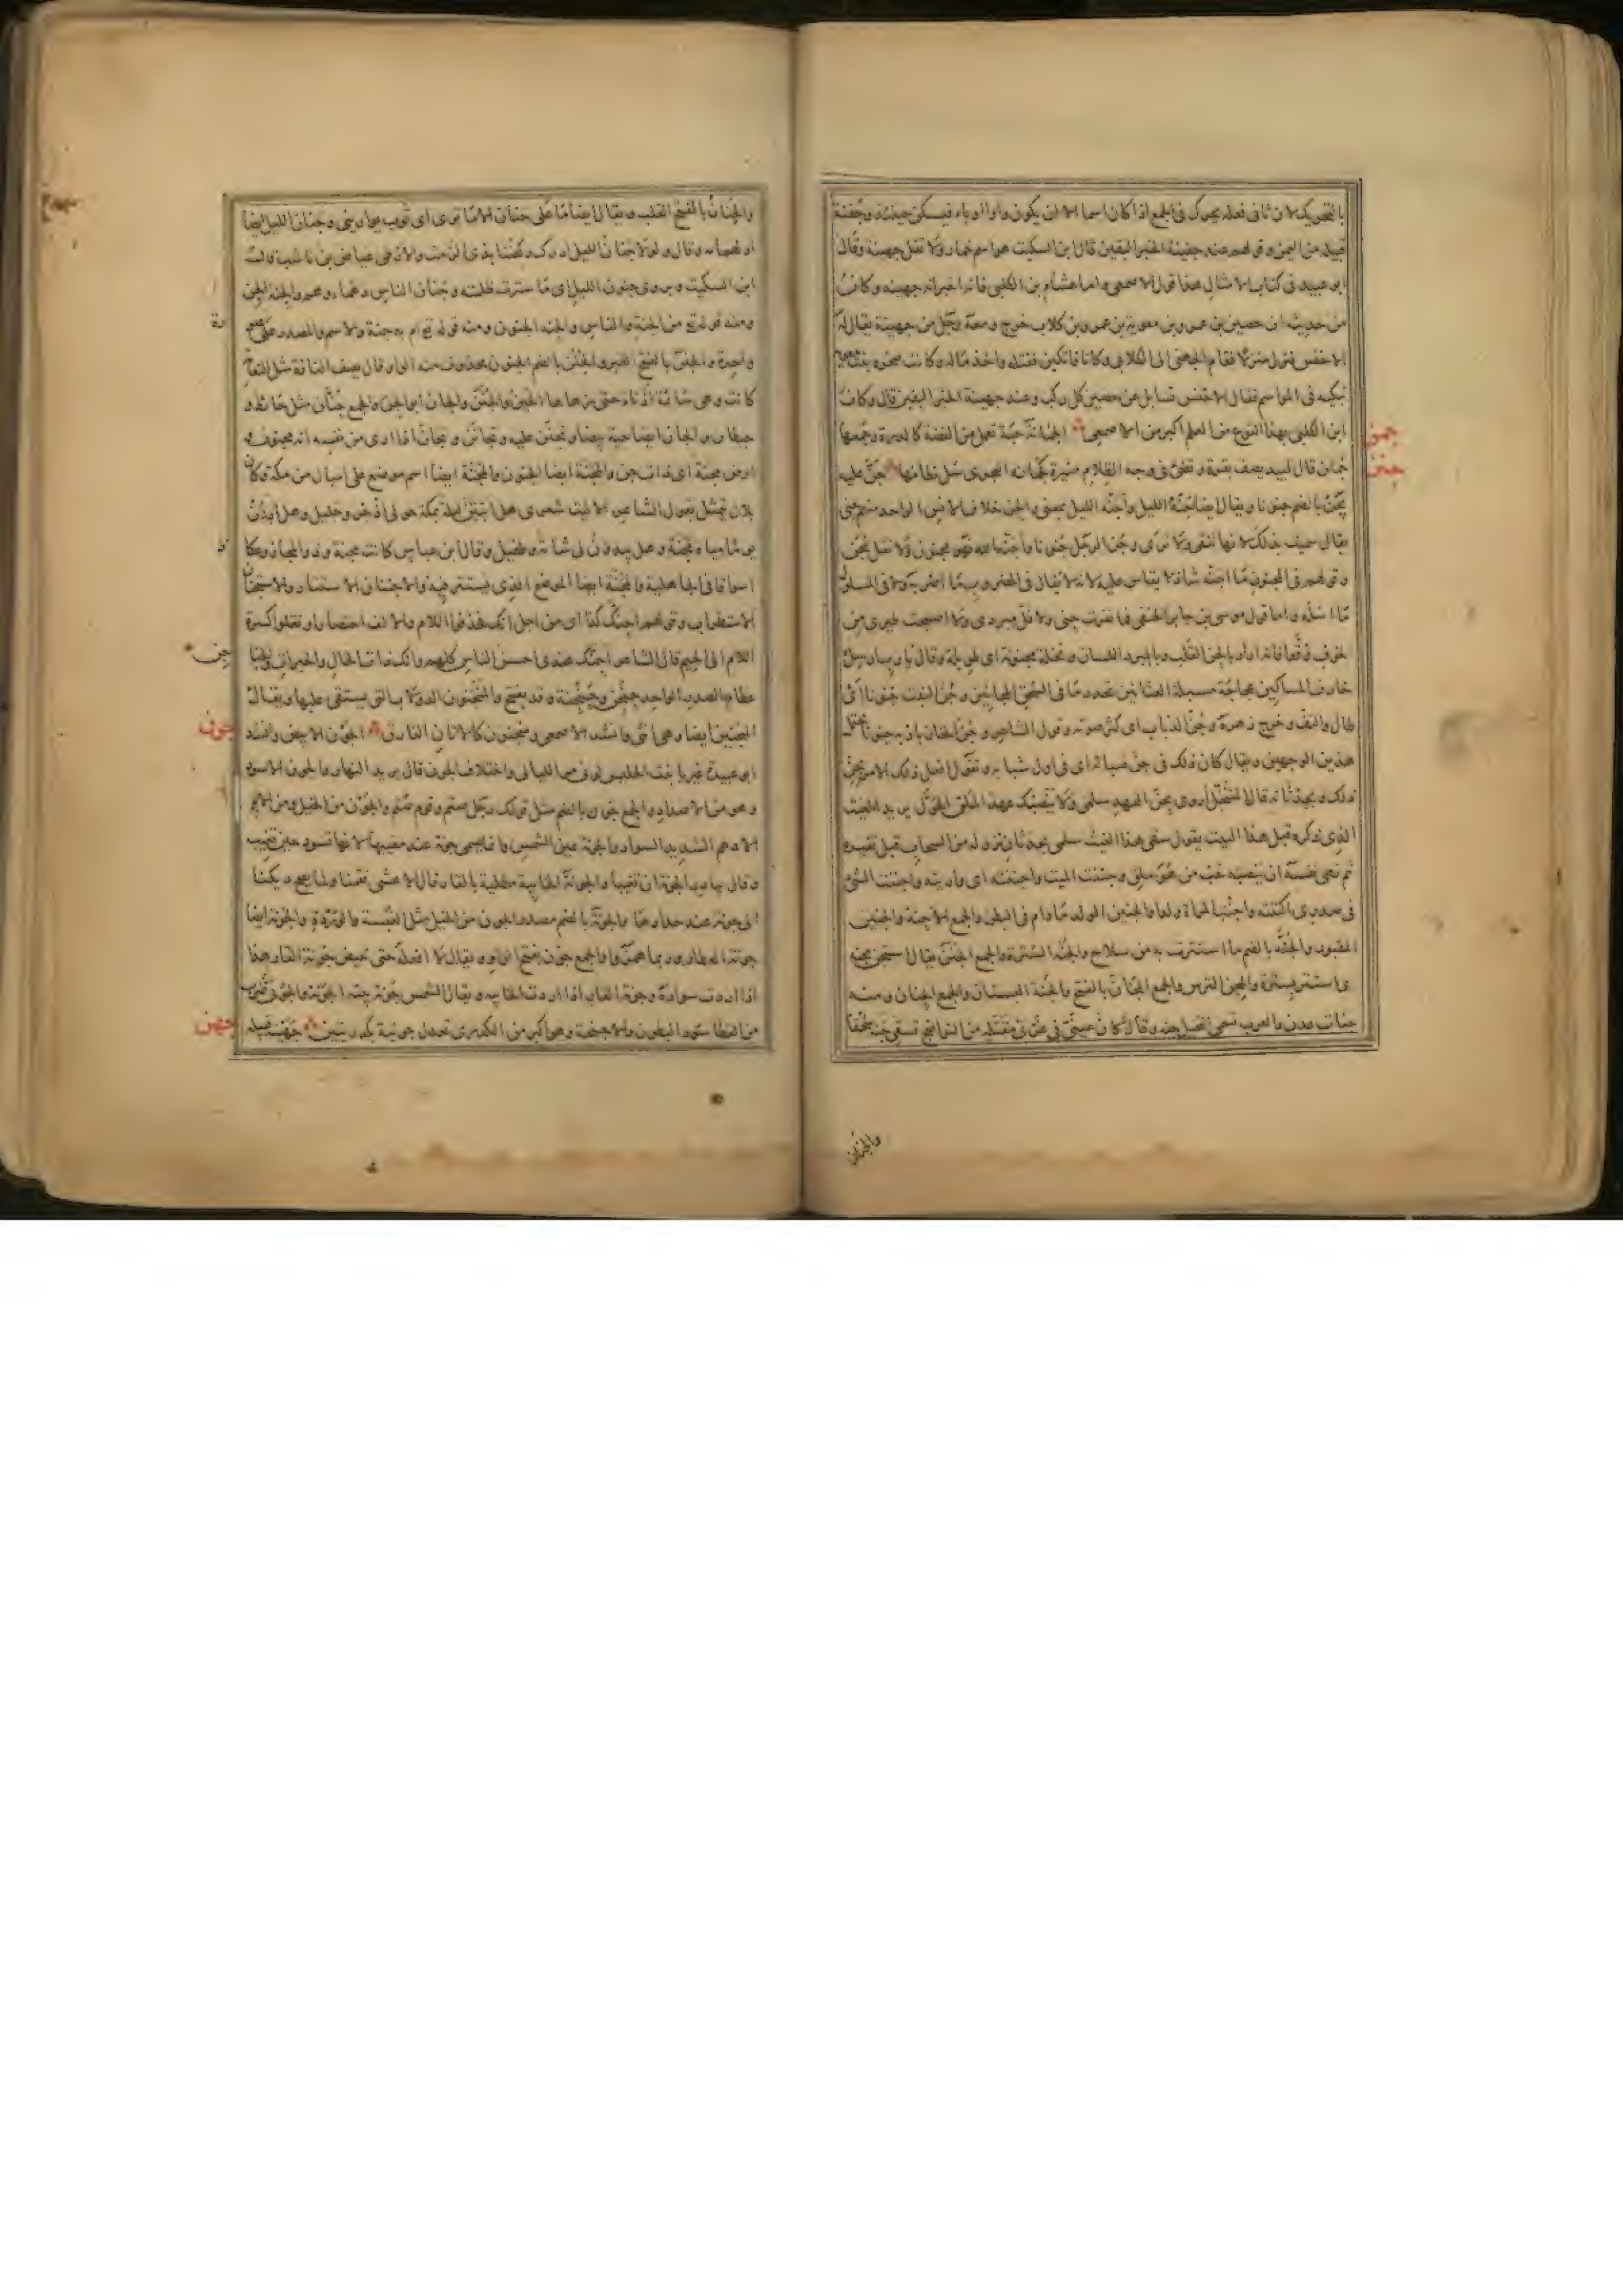 بالتحريك لان ثانى فعلة يحرك فى الجمع اذا كان اسما الا ان يكون واوا او ياء فيسكن حينئذ وجفنة
قبيلة من اليمن وقولهم عند جفينة الخبر اليقين قال ابن السكيت هو اسم خمار ولا تقل جهينة وقال
ابو عبيد فى كتاب الامثال هذا قول الاصمعى واما هشام بن الكلبى فانه اخبر انه جهينة وكان
من حديثه ان حصين بن عمرو بن معوية بن عمرو بن كلاب خرج ومعه رجل من جهينة يقال له
الاخنس فنزلا منزلا فقام الجهنى الى الكلابى وكانا فاتكين فقتله واخذ ماله وكانت صخرة بنت
تبكيه فى المواسم فقال الاخنس تسايل عن حصين كل ركب وعند جهينة الخبر اليقين قال وكان
ابن الكلبى بهذا النوع من العلم اكبر من الاصمعى الجمانة حبة تعمل من الفضة كالدرة وجمعها
جمن
جمان قال لبيد يصف بقرة وتضئ فى وجه الظلام منيرة كجمانة البحرى سل نظامها جن عليه
جنن
يجن بالضم جنونا ويقال ايضا جنه الليل واجنه الليل بمعنى والجن خلاف الانس الواحد منهم جنى
يقال سميت بذلك لانها تتقى ولا ترى وجن الرجل جنونا واجنه الله فهو مجنون ولا تقل مجن
وقولهم فى المجنون ما اجنه شاذ لا يقاس عليه لانه لا يقال فى المضروب ما اضربه ولا فى المسلول
ما اسله واما قول موسى بن جابر الحنفى فما نفرت جنى ولا فل مبردى ولا اصبحت طيرى من
الخوف وقعا فانه اراد بالجن القلب وبالمبرد اللسان ونخلة مجنونة اى طويلة وقال يا رب ارسل
خارف المساكين عجاجة مسبلة العثانين تحدر ما فى السحق المجانين وجن النبت جنونا اى
طال والتف وخرج زهره وجن الذباب اى كثر صوته وقول الشاعر وجن الخازباز به جنونا يحتمل
هذين الوجهين ويقال كان ذلك فى جن شبابه اى فى اول شبابه وتقول افعل ذلك الامر بجن
ذلك وبحدثانه قال المتنخل اروى بجن العهد سلمى ولا ينصبك عهد الملق الحول يريد الغيث
الذى ذكره قبل هذا البيت يقول سقى هذا الغيث سلمى بحدثان نزوله من السحاب قبل تغيره
ثم نهى نفسه ان ينصبه حب من هو ملق وجننت الميت واجننته اى واريته واجننت الشئ
فى صدرى اكننته واجنت المراة ولدا والجنين الولد ما دام فى البطن والجمع الاجنة والجنين
المقبور والجنة بالضم ما استترت به من سلاح والجنة السترة والجمع الجنن يقال استجن بجنة
اى استتر بسترة والمجن الترس والجمع المجان بالفتح والجنة البستان والجمع الجنان ومنه
جنات عدن والعرب تسمى النخيل جنة وقال كان عينى فى غربى مقتلة من النواضح تسقى جنة سحقا
والجنان
والجنان بالفتح القلب ويقال ايضا ما على جنان الا ما ترى اى ثوب يوارينى وجنان الليل ايضا
ادلهمامه وقال ولولا جنان الليل ادرك ركضنا بذى الرمث والارطى عياض بن ناشب قال
ابن السكيت ويروى جنون الليل اى ما ستر من ظلمته وجنان الناس دهماءهم والجنة الجن
ومنه قوله تع من الجنة والناس والجنة الجنون ومنه قوله تع ام به جنة والاسم والمصدر على صورة
واحدة والجنن بالفتح القبر والجنن بالضم الجنون محذوف منه الواو وقال يصف الناقة مثل النعامة
كانت وهى سائمة اذناء حتى زهاها الحين والجنن والجان ابو الجن والجمع جنان مثل حائط و
حيطان والجان ايضا حية بيضاء وتجنن عليه وتجانن وتجان اذا ارى من نفسه انه مجنون و
ارض مجنة اى ذات جن والمجنة ايضا الجنون والمجنة ايضا اسم موضع على اميال من مكة وكان
بلال يتمثل بقول الشاعر الا ليت شعرى هل ابيتن ليلة بمكة حولى اذخر وجليل وهل اردن
يوما مياه مجنة وهل يبدون لى شامة وطفيل وقال ابن عباس كانت مجنة وذو المجاز وعكاظ
اسواقا فى الجاهلية والمجنة ايضا الموضع الذى يستتر فيه والاجتنان الاستتار والاستجنان
الاستطراب وقولهم اجنك كذا اى من اجل انك فحذفوا اللام والالف اختصارا ونقلوا كسرة
اللام الى الجيم قال الشاعر اجنك عندى احسن الناس كلهم وانك ذات الخال والحبرات والجناجن
عظام الصدر الواحد جنجن وجنجنة وقد يفتح والمنجنون الدولاب التى يستقى عليها ويقال
المنجنين ايضا وهى انثى وانشد الاصمعى ومنجنون كالاتان الفارق الجون الابيض وانشد
جون
ابو عبيدة غير يا بنت الحليس لونى مر الليالى واختلاف الجون قال يريد النهار والجون الاسود
وهو من الاضداد والجمع جون بالضم مثل قولك رجل صتم وقوم صتم والجون من الخيل ومن الابل
الادهم الشديد السواد والجونة عين الشمس وانما سمى جونة عند مغيبها لانها تسود حين تغيب
وقال يبادر الجونة ان تغيبا والجونة الخابية مطلية بالقار وقال الاعشى فقمنا ولما يصح ديكنا
الى جونة عند حدادها والجونة بالضم مصدر الجون من الخيل مثل الغبسة والوردة والجونة ايضا
جونة العطار وربما همز والجمع جون بفتح الواو ويقال لا افعله حتى تبيض جونة القار هذا
اذا اردت سواده وجونة القار اذا اردت الخابية ويقال للشمس جونة بينة الجونة والجونى ضرب
من القطا سود البطون والاجنحة وهو اكبر من الكدرى تعدل جونية بكدريتين جهينة قبيلة
جهن